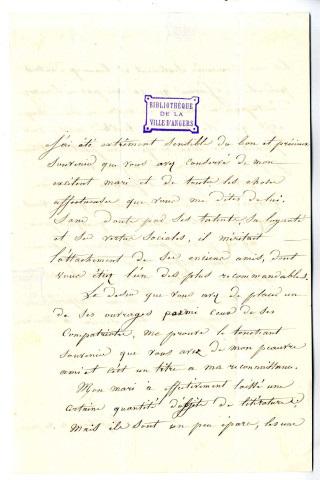 BIBLIOTHÈQUE
DE LA
VILLE D'ANGERS
J'ai été extrêment sensible du bon et précieux
Souvenir que vous avez conservé de mon
excélent mari et de toute les chose
affectueuse que vous me dites de lui.
Sans doute par ses talents, sa loyauté
et ses vertus Sociales, il méritait
l'attachement de ses enciens amis, dont
vous étiez l'un des plus recommandables.
Le desir que vous avez de placer un
de ses ouvrages parmi ceux de ses
Compatriote, me prouve le touchant
souvenir que vous avez de mon pauvre
ami et c'est un titre a ma reconnaissance.
Mon mari a effectivement laissé une
certaine quantité d'objets de littérature,
Mais ils sont un peu épars, les uns